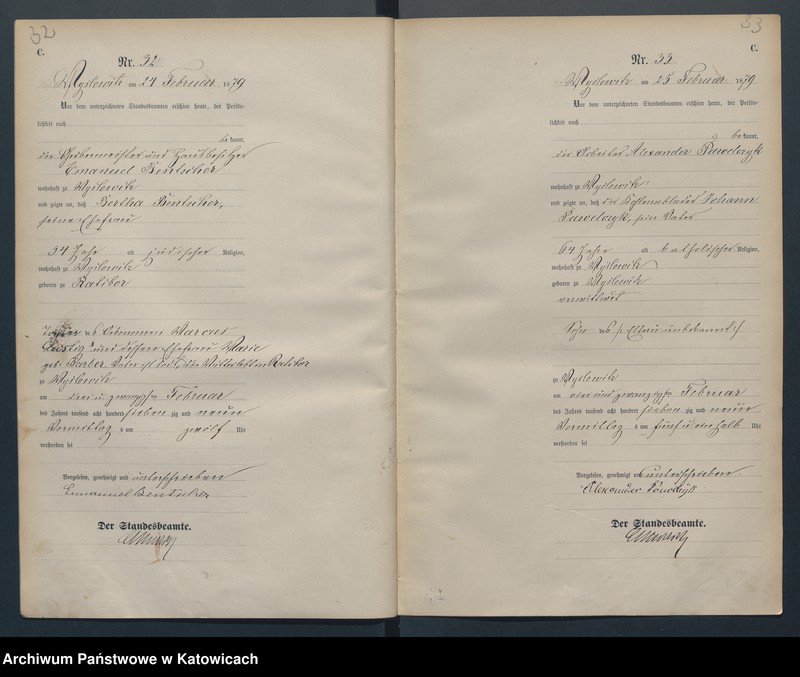 32
C.
Nr. 32
Myslowitz am 24 Februar 1879
Vor dem unterzeichneten Standesbeamten erschien heute, der Persön-
lichkeit nach
bekannt,
der Gerbermeister und
Emanuel Bentscher
wohnhaft zu Myslowitz
und zeigte an, daß Bertha Bentscher,
seine Ehefrau
34 Jahr alt jüdischer Religion,
wohnhaft zu Myslowitz
geboren zu Ratibor
Tochter des Oekonomen Marcus
und dessen Ehefrau Marie
geb. Berber, Vater ist todt, die Mutter lebt in Ratibor
zu Myslowitz
am drei u zwanzigsten Februar
des Jahres tausend acht hundert sieben zig und neun
Vormittag s um zwölf Uhr
verstorben sei
Vorgelesen, genehmigt und unterschrieben
Emanuel Bentscher
Der Standesbeamte.
33
C.
Nr. 33
Myslowitz am 25 Februar 1879
Vor dem unterzeichneten Standesbeamten erschien heute, der Persön-
lichkeit nach
bekannt,
der Arbeiter Alexander Pawelczyk
wohnhaft zu Myslowitz
und zeigte an, daß der Johann
Pawelczyk, sein Vater
64 Jahr alt katholischer Religion,
wohnhaft zu Myslowitz
geboren zu Myslowitz
verwittwet
Sohn des
zu Myslowitz
am vier und zwanzigsten Februar
des Jahres tausend acht hundert sieben zig und neun
Vormittag s um fünf u ein halb Uhr
verstorben sei
Vorgelesen, genehmigt und unterschrieben
Alexander
Der Standesbeamte.
Archiwum Państwowe w Katowicach